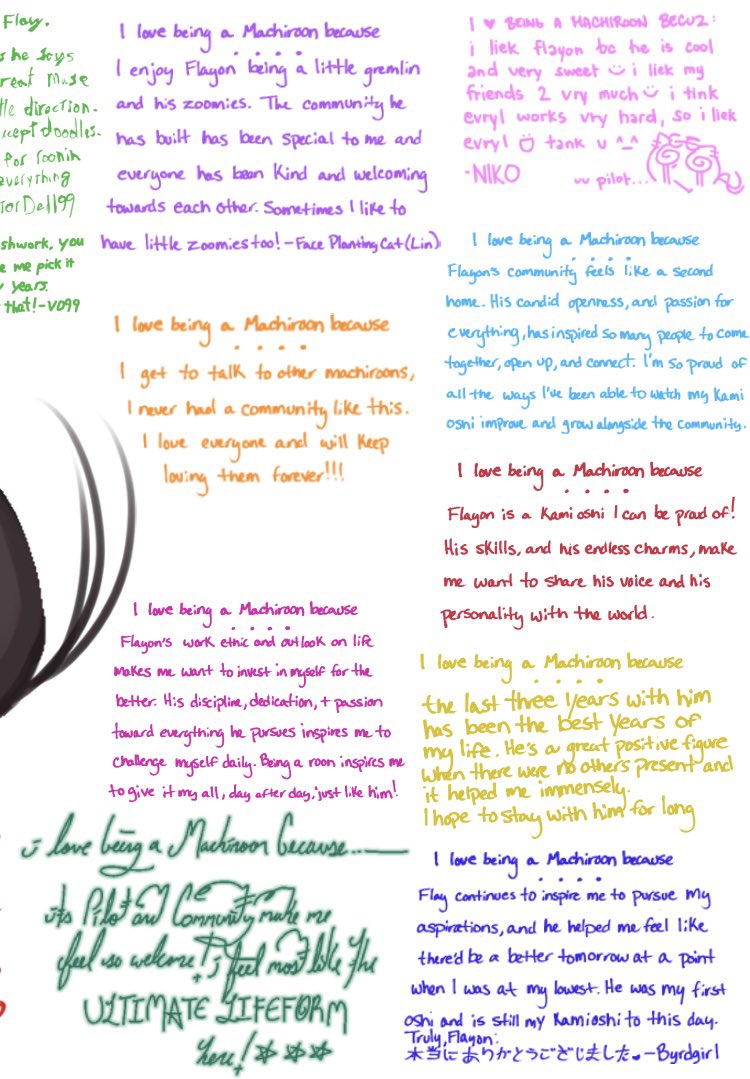 Flay.
he says
reat Muse
tle direction.
ccept doodles.
for roonin
everything
TorDell99
shwork, you
e me pick it
years.
that!-VD99
I love being a Machiroon because
. . . .
I enjoy Flayon being a little gremlin
and his zoomies. The community he
has built has been special to me and
everyone has been kind and welcoming
towards each other. Sometimes I like to
have little zoomies too! -Face Planting Cat (Lin)
I ♥ BEING A MACHIROON BECUZ:
i liek flayon bc he is cool
and very sweet ☺ i liek my
friends 2 vry much ☺ i tink
evry1 works vry hard, so i liek
evry1 ☺ tank u ^_^
-NIKO
uu pilot...
I love being a Machiroon because
. . . .
Flayon's community feels like a second
home. His candid openness, and passion for
everything, has inspired so many people to come
together, open up, and connect. I'm so proud of
all the ways I've been able to watch my Kami
oshi improve and grow alongside the community.
I love being a Machiroon because
. . . .
I get to talk to other machiroons,
I never had a community like this.
I love everyone and will keep
loving them forever!!!
I love being a Machiroon because
. . . .
Flayon is a Kami oshi I can be proud of!
His skills, and his endless charms, make
me want to share his voice and his
personality with the world.
I love being a Machiroon because
. . . .
Flayon's work ethic and outlook on life
makes me want to invest in myself for the
better. His discipline, dedication, + passion
toward everything he pursues inspires me to
challenge myself daily. Being a roon inspires me
to give it my all, day after day, just like him!
I love being a Machiroon because
. . . .
the last three years with him
has been the best years of
my life. He's a great positive figure
when there were no others present and
it helped me immensely.
I hope to stay with him for long
i love being a Machiroon because...
its Pilot and Community make me
feel so welcome! i feel most like the
ULTIMATE LIFEFORM
here! ☆☆☆
I love being a Machiroon because
. . . .
Flay continues to inspire me to pursue my
aspirations, and he helped me feel like
there'd be a better tomorrow at a point
when I was at my lowest. He was my first
oshi and is still my Kamioshi to this day.
Truly, Flayon:
本当にありがとうございました♥-Byrdgirl